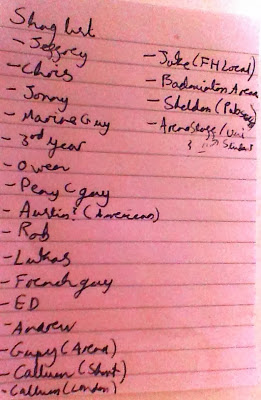 Shag list
- Jeffrey
- Chris
- Jonny
- Marine Guy
- 3rd year
- Owen
- Peny C guy
- Austin? (American)
- Rob
- Lukas
- French guy
- ED
- Andrew
- Gupy (Arena)
- Callum (Short)
- Callum (London)
- Jake (FH Local)
- Badminton Arena
- Sheldon (
- Arena Stage / Uni
3